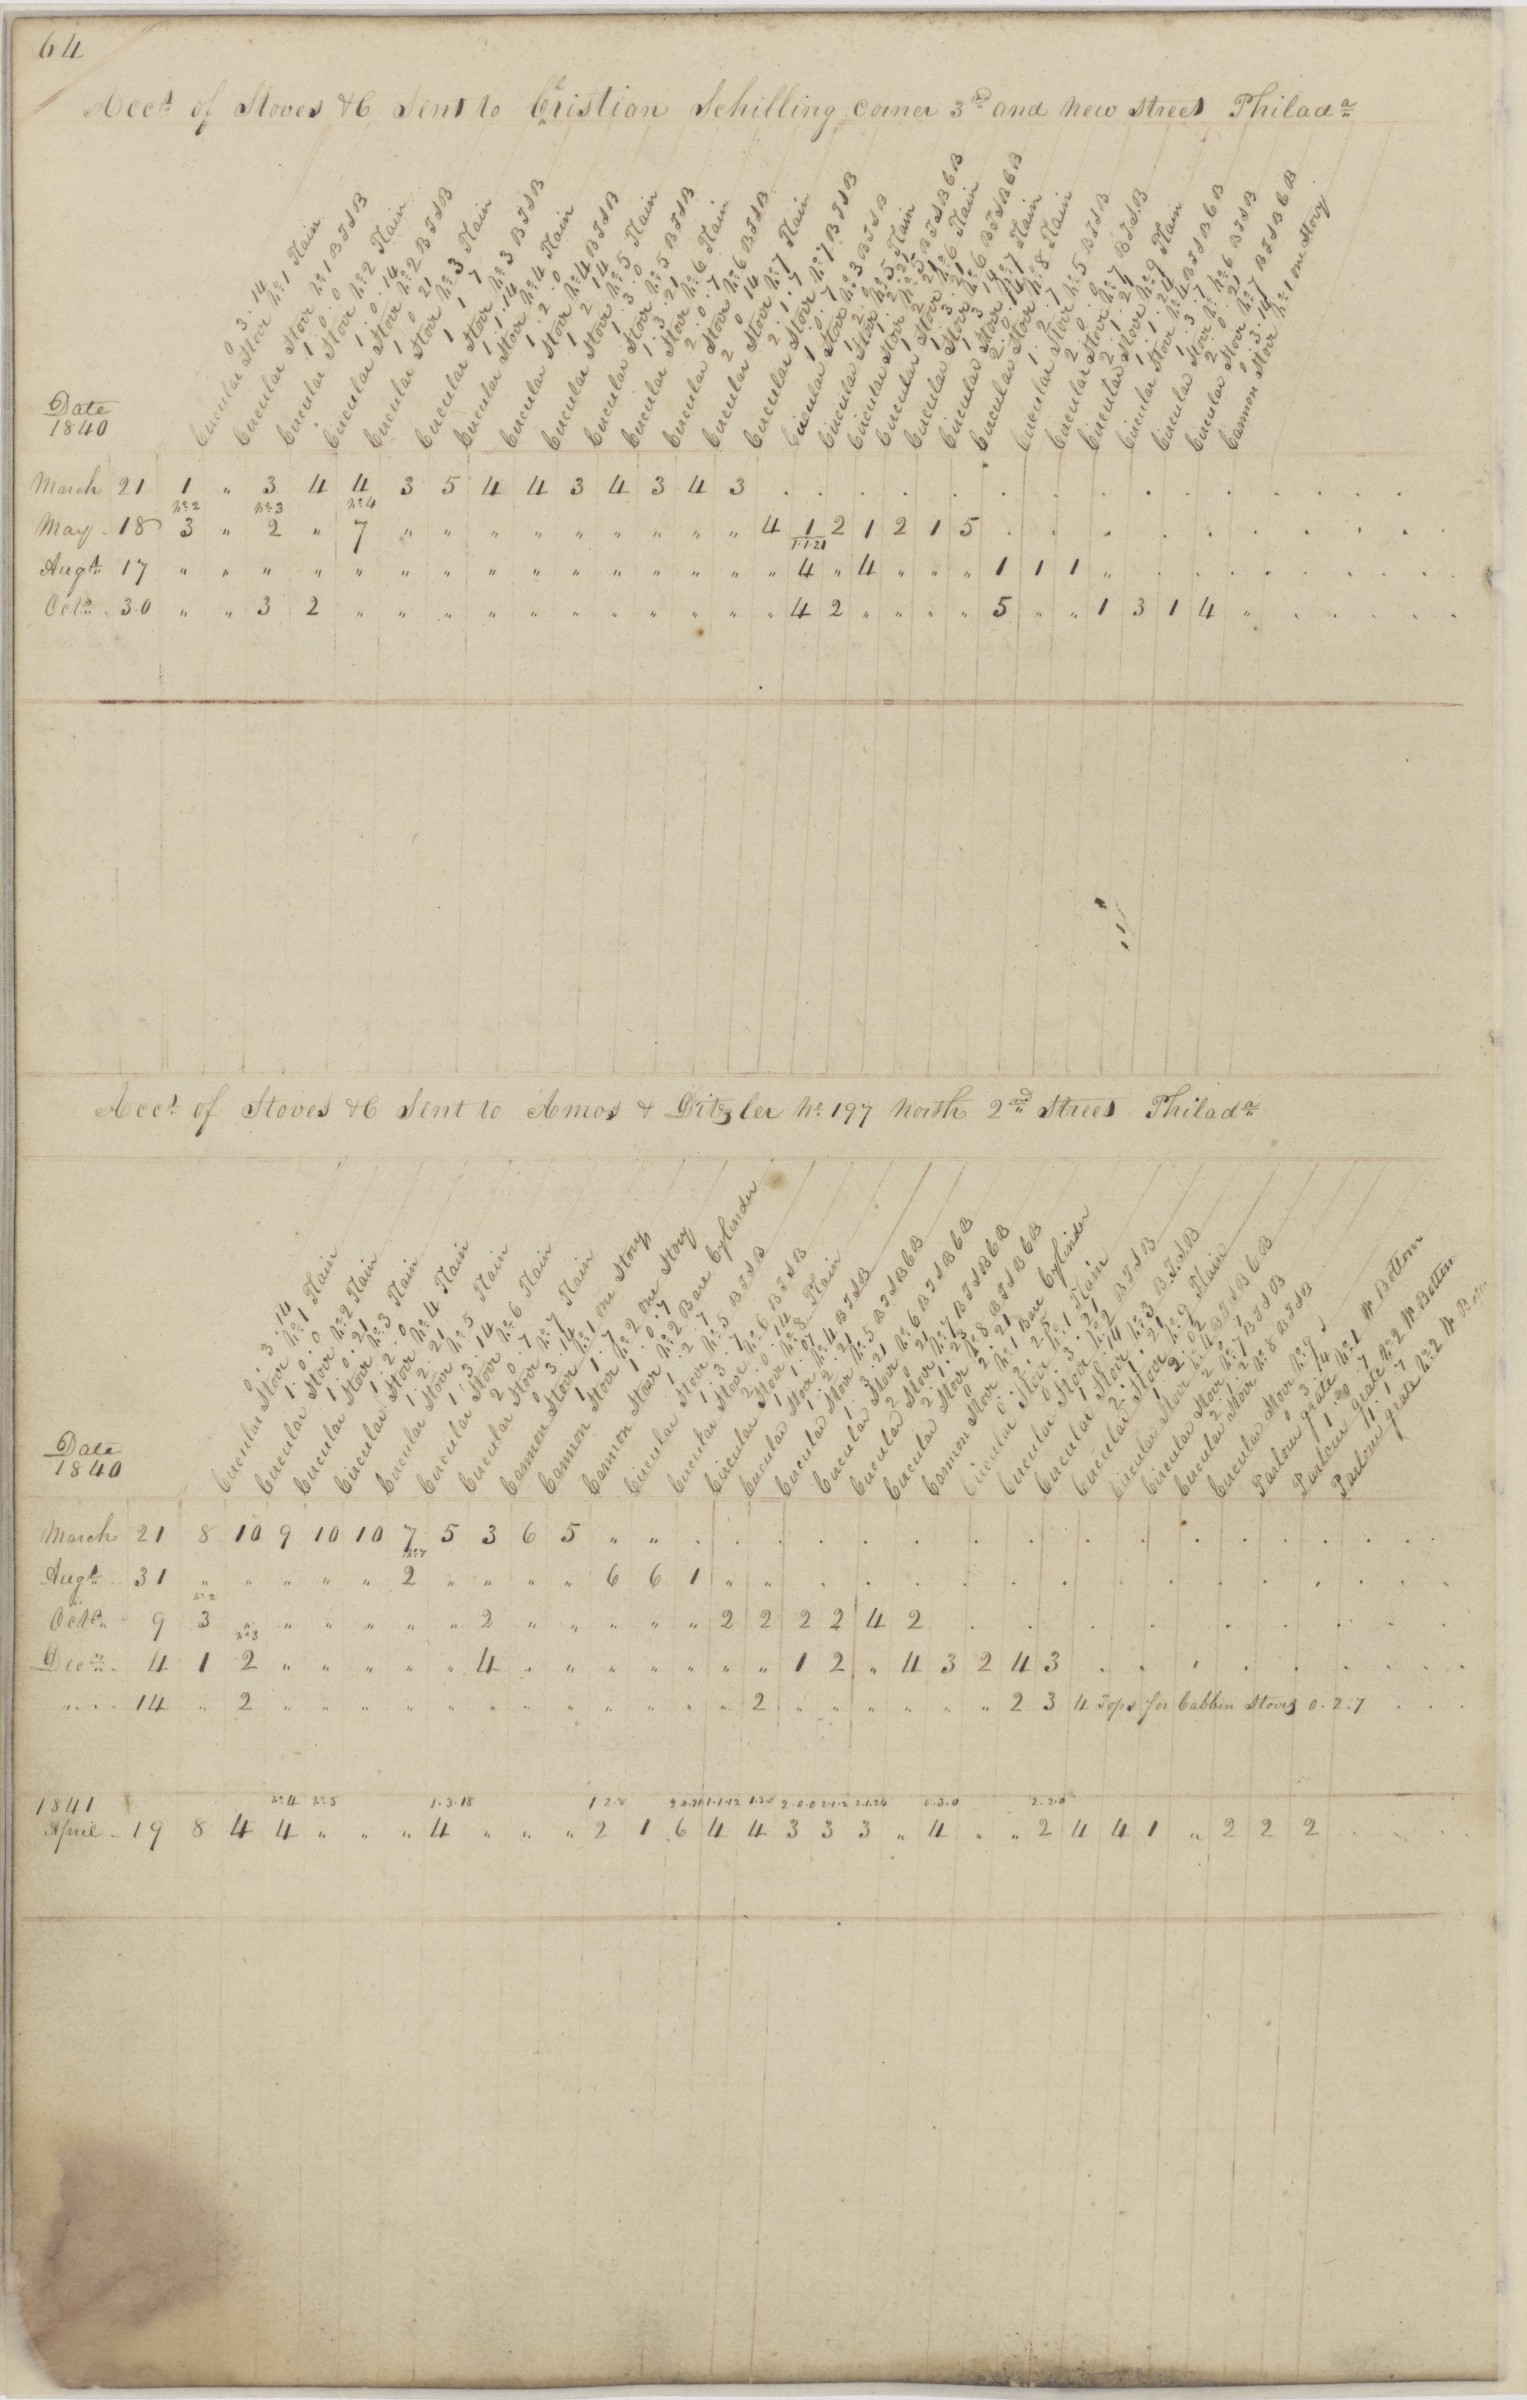 64
Acct of Stoves &C Sent to Cristian Schilling corner 3rd and New Street Philada
0 . 3 . 14
Circular Stove No 1 Plain
Circular Stove No 1 B T S B
1 . 0 . 0
Circular Stove No 2 Plain
1 . 0 . 14
Circular Stove No 2 B T S B
1 0 21
Circular Stove No 3 Plain
1 1 7
Circular Stove No 3 B T S B
1 . 1 . 14
Circular Stove No 4 Plain
1 . 2 . 0
Circular Stove No 4 B T S B
1 2 14
Circular Stove No 5 Plain
Circular Stove No 5 B T S B
1 . 3 . 21
Circular Stove No 6 Plain
2 . 0 . 7
Circular Stove No 6 B T S B
2 0 14
Circular Stove No 7 Plain
2 . 1 . 7
Circular Stove No 7 B T S B
1 . 0 . 7
Circular Stove No 3 B T S B
Circular Stove No 5 Plain
Circular Stove No 5 B T S B C B
Circular Stove No 6 Plain
Circular Stove No 6 B T S B C B
Circular Stove No 7 Plain
Circular Stove No 8 Plain
Circular Stove No 5 B T S B
Circular Stove No 7 B T S B
Circular Stove No 9 Plain
Circular Stove No 4 B T S B C B
Circular Stove No 6 B T S B
Circular Stove No 7 B T S B C B
0 . 3 . 14
Cannon Stove No 1 one Story
Date
1840
March 21 1 " 3 4 4 3 5 4 4 3 4 3 4 3
No 2 No 3 No 4
May 18 3 " 2 " 7 " " " " " " " " " 4 1 2 1 2 1 5
1.1.21
Augt 17 " " " " " " " " " " " " " " " 4 " 4 " " " 1 1 1 "
Octr 30 " " 3 2 " " " " " " " " " " " 4 2 " " " " 5 " " 1 3 1 4 "
Acct of Stoves &C Sent to Amos & Ditzler No 197 North 2nd Street Philada
0 . 3 . 14
Circular Stove No 1 Plain
1 . 0 . 0
Circular Stove No 2 Plain
1 . 0 . 21
Circular Stove No 3 Plain
1 . 2 . 0
Circular Stove No 4 Plain
1 . 2 . 21
Circular Stove No 5 Plain
1 . 3 . 14
Circular Stove No 6 Plain
2 0 . 7
Circular Stove No 7 Plain
0 3 . 14
Cannon Stove No 1 one Story
1 . 7
Cannon Stove No 2 one Story
1 . 0 . 7
Cannon Stove No 2 Bare Cylinder
1 . 2 . 7
Circular Stove No 5 B T S B
1 . 3 . 7
Circular Stove No 6 B T S B
2 . 0 . 14
Circular Stove No 8 Plain
Circular Stove No 4 B T S B
1 . 2 . 21
Circular Stove No 5 B T S B C B
1 . 3 . 21
Circular Stove No 6 B T S B C B
2 0 21
Circular Stove No 7 B T S B C B
Circular Stove No 8 B T S B C B
Cannon Stove No 1 Bare Cylinder
Circular Stove No 1 Plain
Circular Stove No 2 B T S B
Circular Stove No 3 B T S B
Circular Stove No 9 Plain
Circular Stove No 4 B T S B C B
Circular Stove No 7 B T S B
Circular Stove No 8 B T S B
Circular Stove No 9
Parlour grate No 1 W Bottom
Parlour grate No 2 W Bottom
Parlour grate No 2 W Bottom
Date
1840
March 21 8 10 9 10 10 7 5 3 6 5 " "
No 7
Augt 31 " " " " " 2 " " " " 6 6 1 " "
No 2
Octr 9 3 " " " " " " 2 " " " " " 2 2 2 2 4 2
No 3
Decr 4 1 2 " " " " " 4 " " " " " " " 1 2 " 4 3 2 4 3
" 14 " 2 " " " " " " " " " " " " 2 " " " " " " 2 3 4 Tops for Cabbin Stoves 0 . 2 . 7
1841 No 4 No 5 1.3.18 1 2.8 2.0.21 1.1.12 1.3.0 2.0.0 2.1.2 2.1.26 0.3.0 2.2.0
April 19 8 4 4 " " " 4 " " " 2 1 6 4 4 3 3 3 " 4 " " 2 4 4 1 " 2 2 2